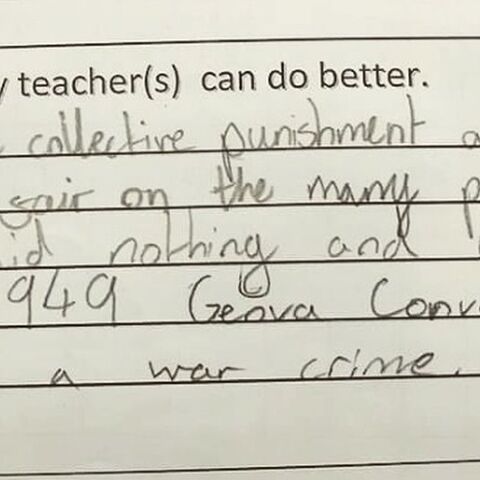 teacher(s) can do better.
collective punishment
fair on the many
nothing and
949 Genva Conv
a war crime.